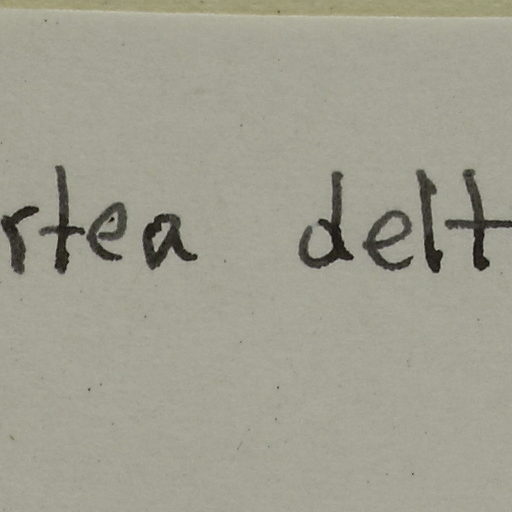 rtea delt